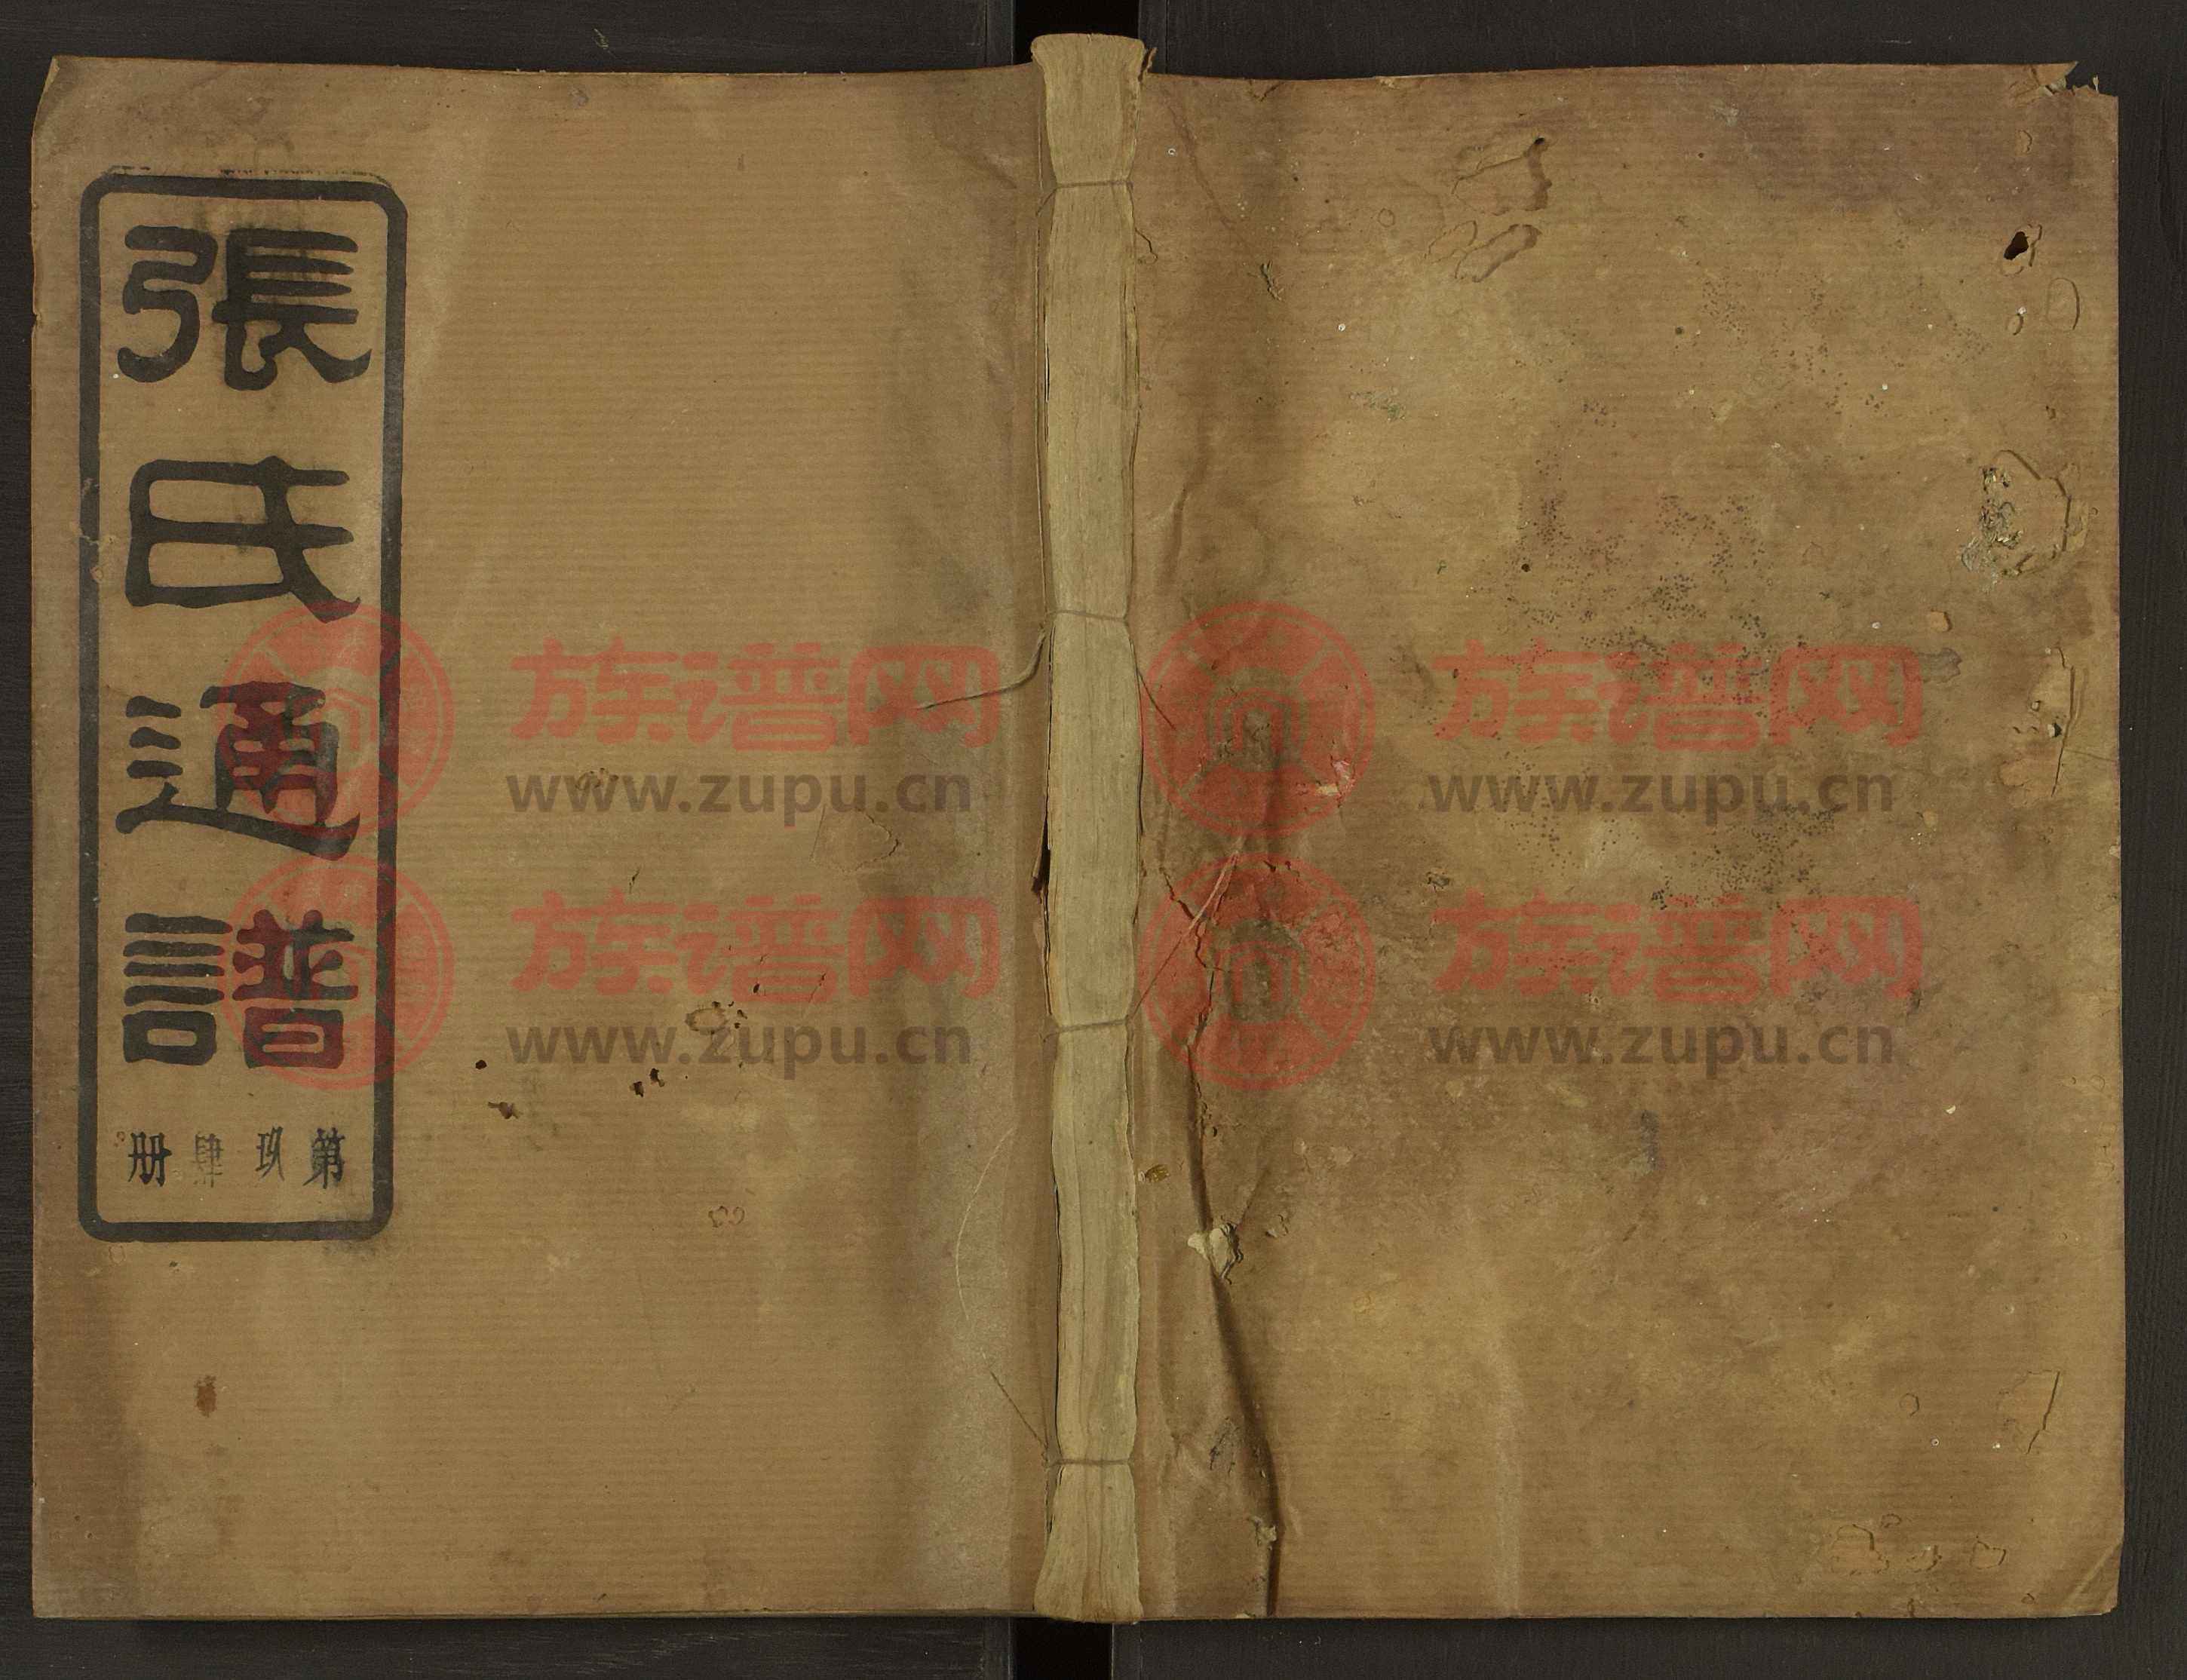 張氏通譜
第玖肆册
族谱网
www.zupu.cn
族谱网
www.zupu.cn
族谱网
www.zupu.cn
族谱网
www.zupu.cn